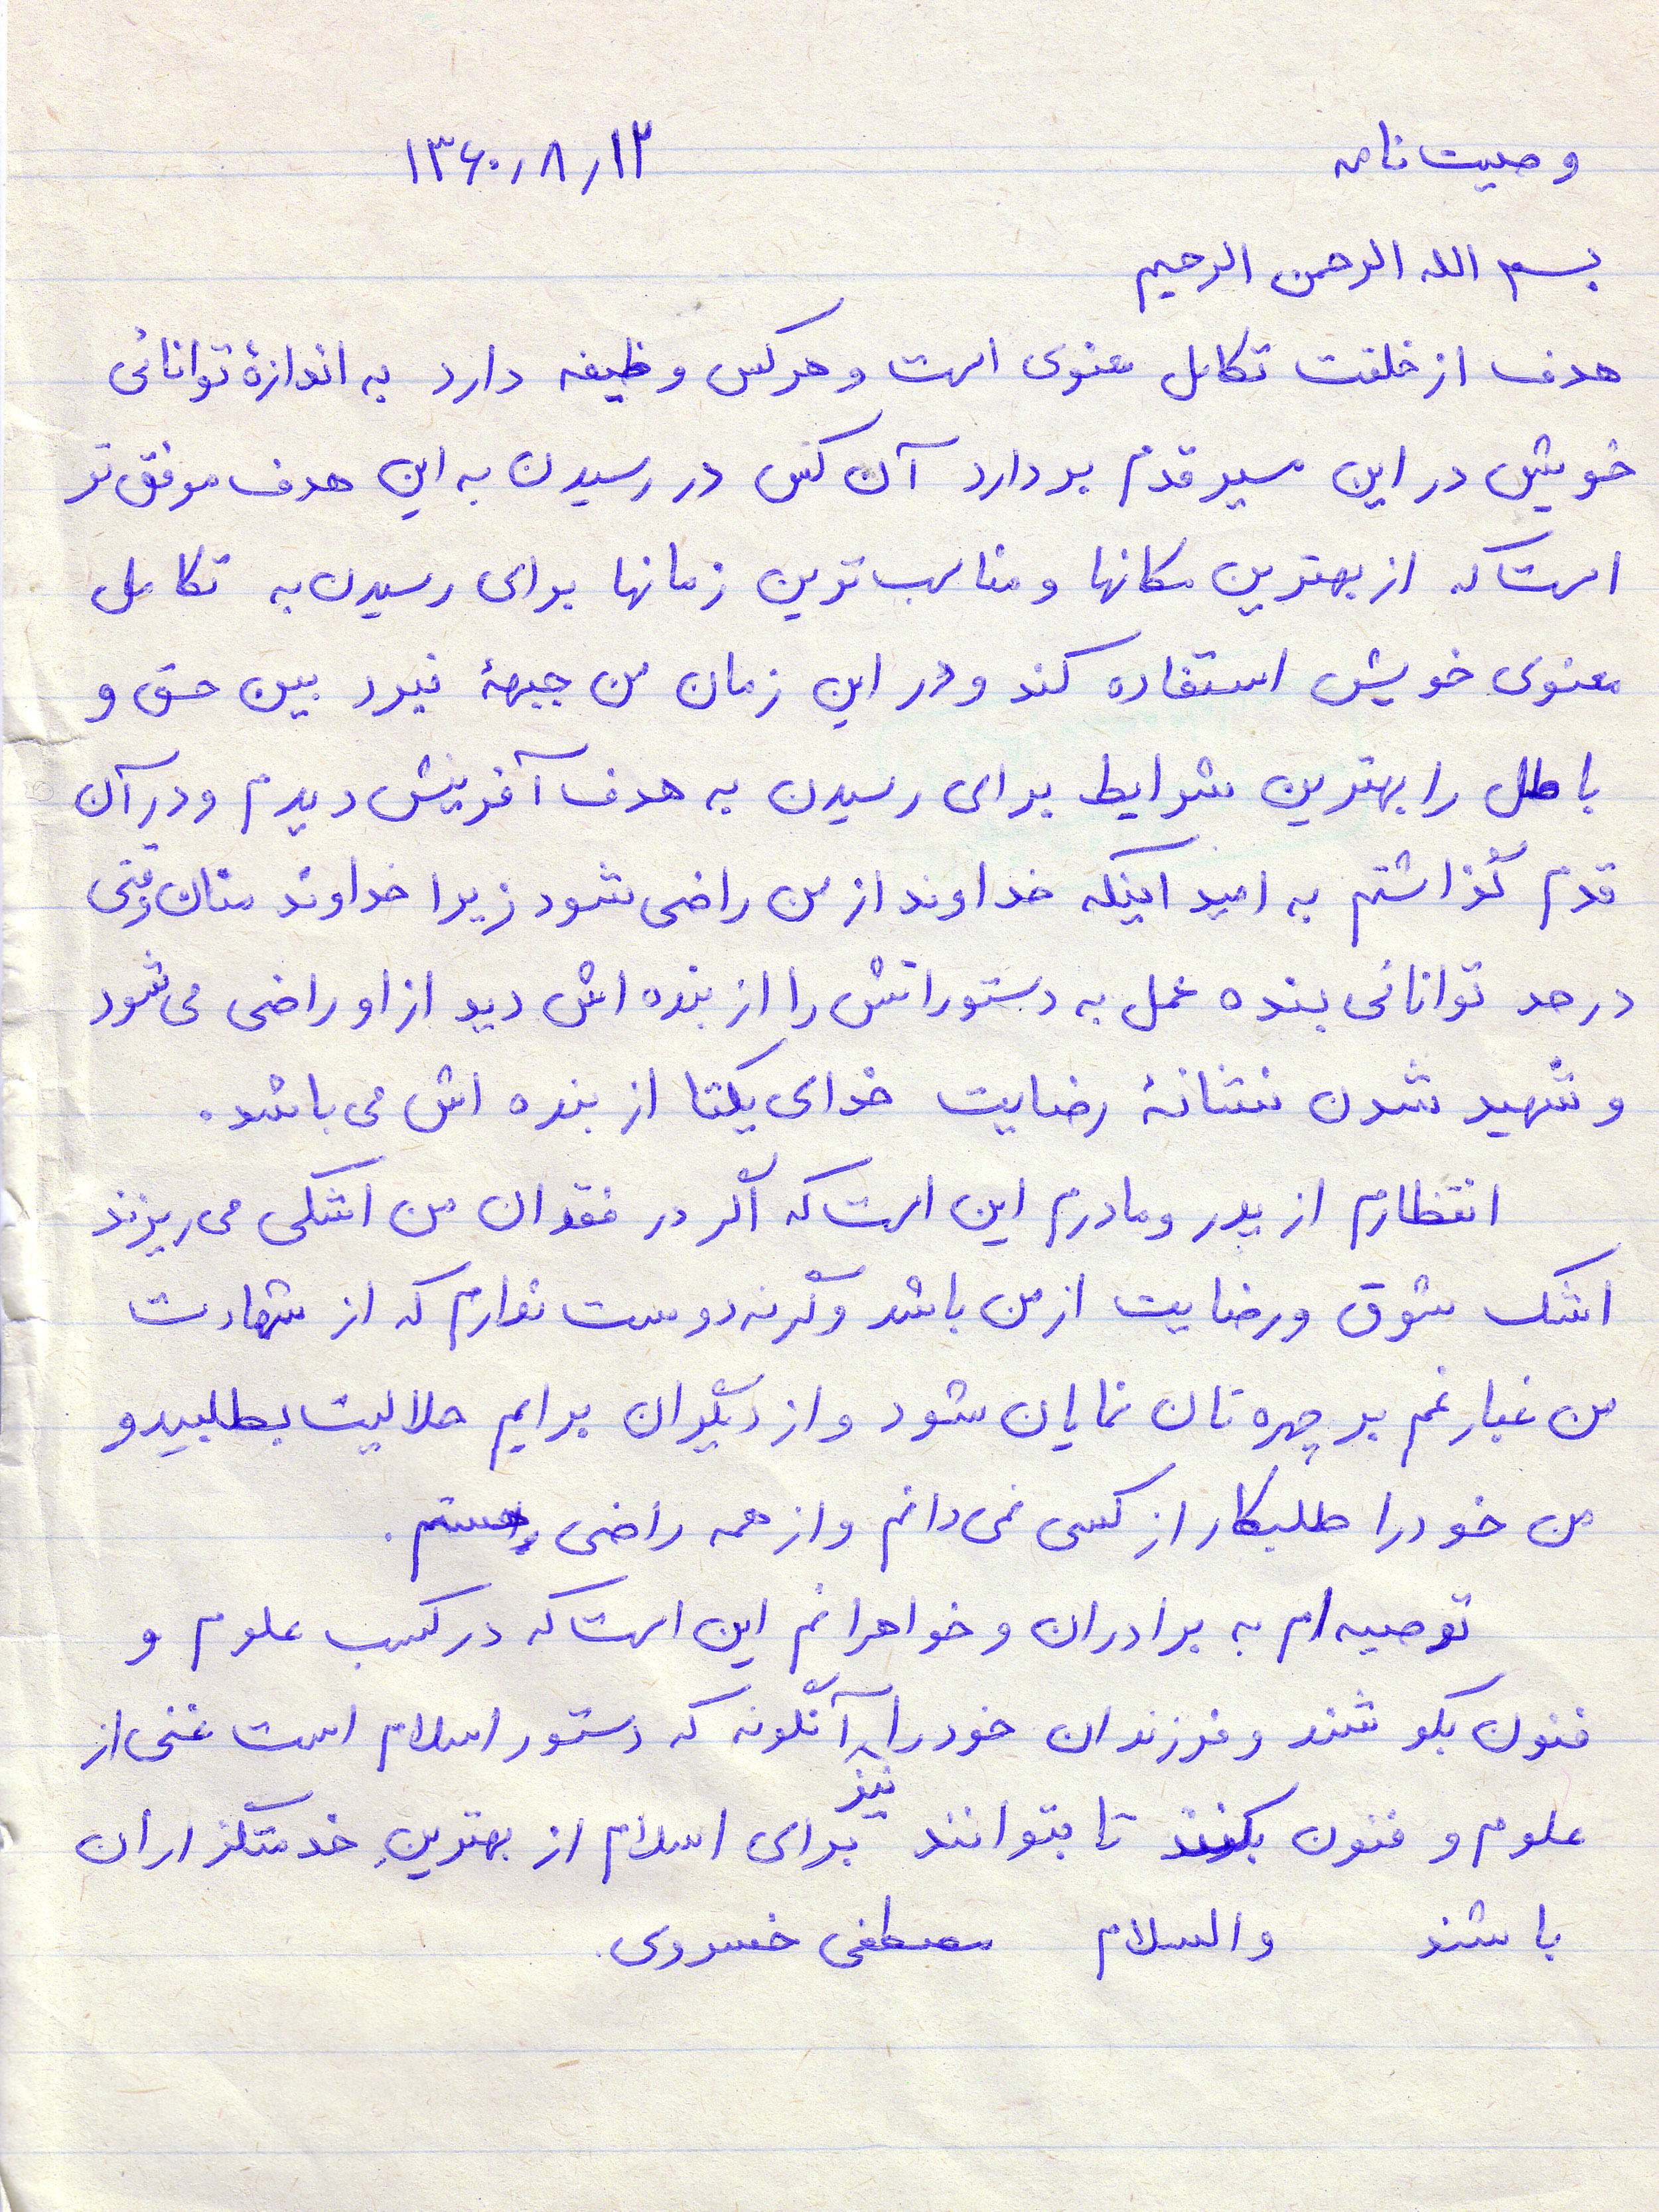 وصیت نامه ۱۳۶۰/۸/۱۲
بسم الله الرحمن الرحیم
هدف از خلقت تکامل معنوی است و هر کس وظیفه دارد به اندازهٔ توانائی
خویش در این مسیر قدم بردارد آن کس در رسیدن به این هدف موفق تر
است که از بهترین مکانها و مناسب ترین زمانها برای رسیدن به تکامل
معنوی خویش استفاده کند و در این زمان من جبههٔ نبرد بین حق و
باطل را بهترین شرایط برای رسیدن به هدف آفرینش دیدم و در آن
قدم گذاشتم به امید اینکه خداوند از من راضی شود زیرا خداوند منان وقتی
در حد توانائی بنده عمل به دستوراتش را از بنده اش دید از او راضی می شود
و شهید شدن نشانهٔ رضایت خدای یکتا از بنده اش می باشد.
انتظارم از پدر و مادرم این است که اگر در فقدان من اشکی می ریزند
اشک شوق و رضایت از من باشد وگرنه دوست ندارم که از شهادت
من غبار غم بر چهره تان نمایان شود و از دیگران برایم حلالیت بطلبید و
من خود را طلبکار از کسی نمی دانم و از همه راضی هستم.
توصیه ام به برادران و خواهرانم این است که در کسب علوم و
فنون بکوشند و فرزندان خود را نیز آنگونه که دستور اسلام است غنی از
علوم و فنون بکنند تا بتوانند برای اسلام از بهترینِ خدمتگزاران
باشند والسلام مصطفی خسروی.